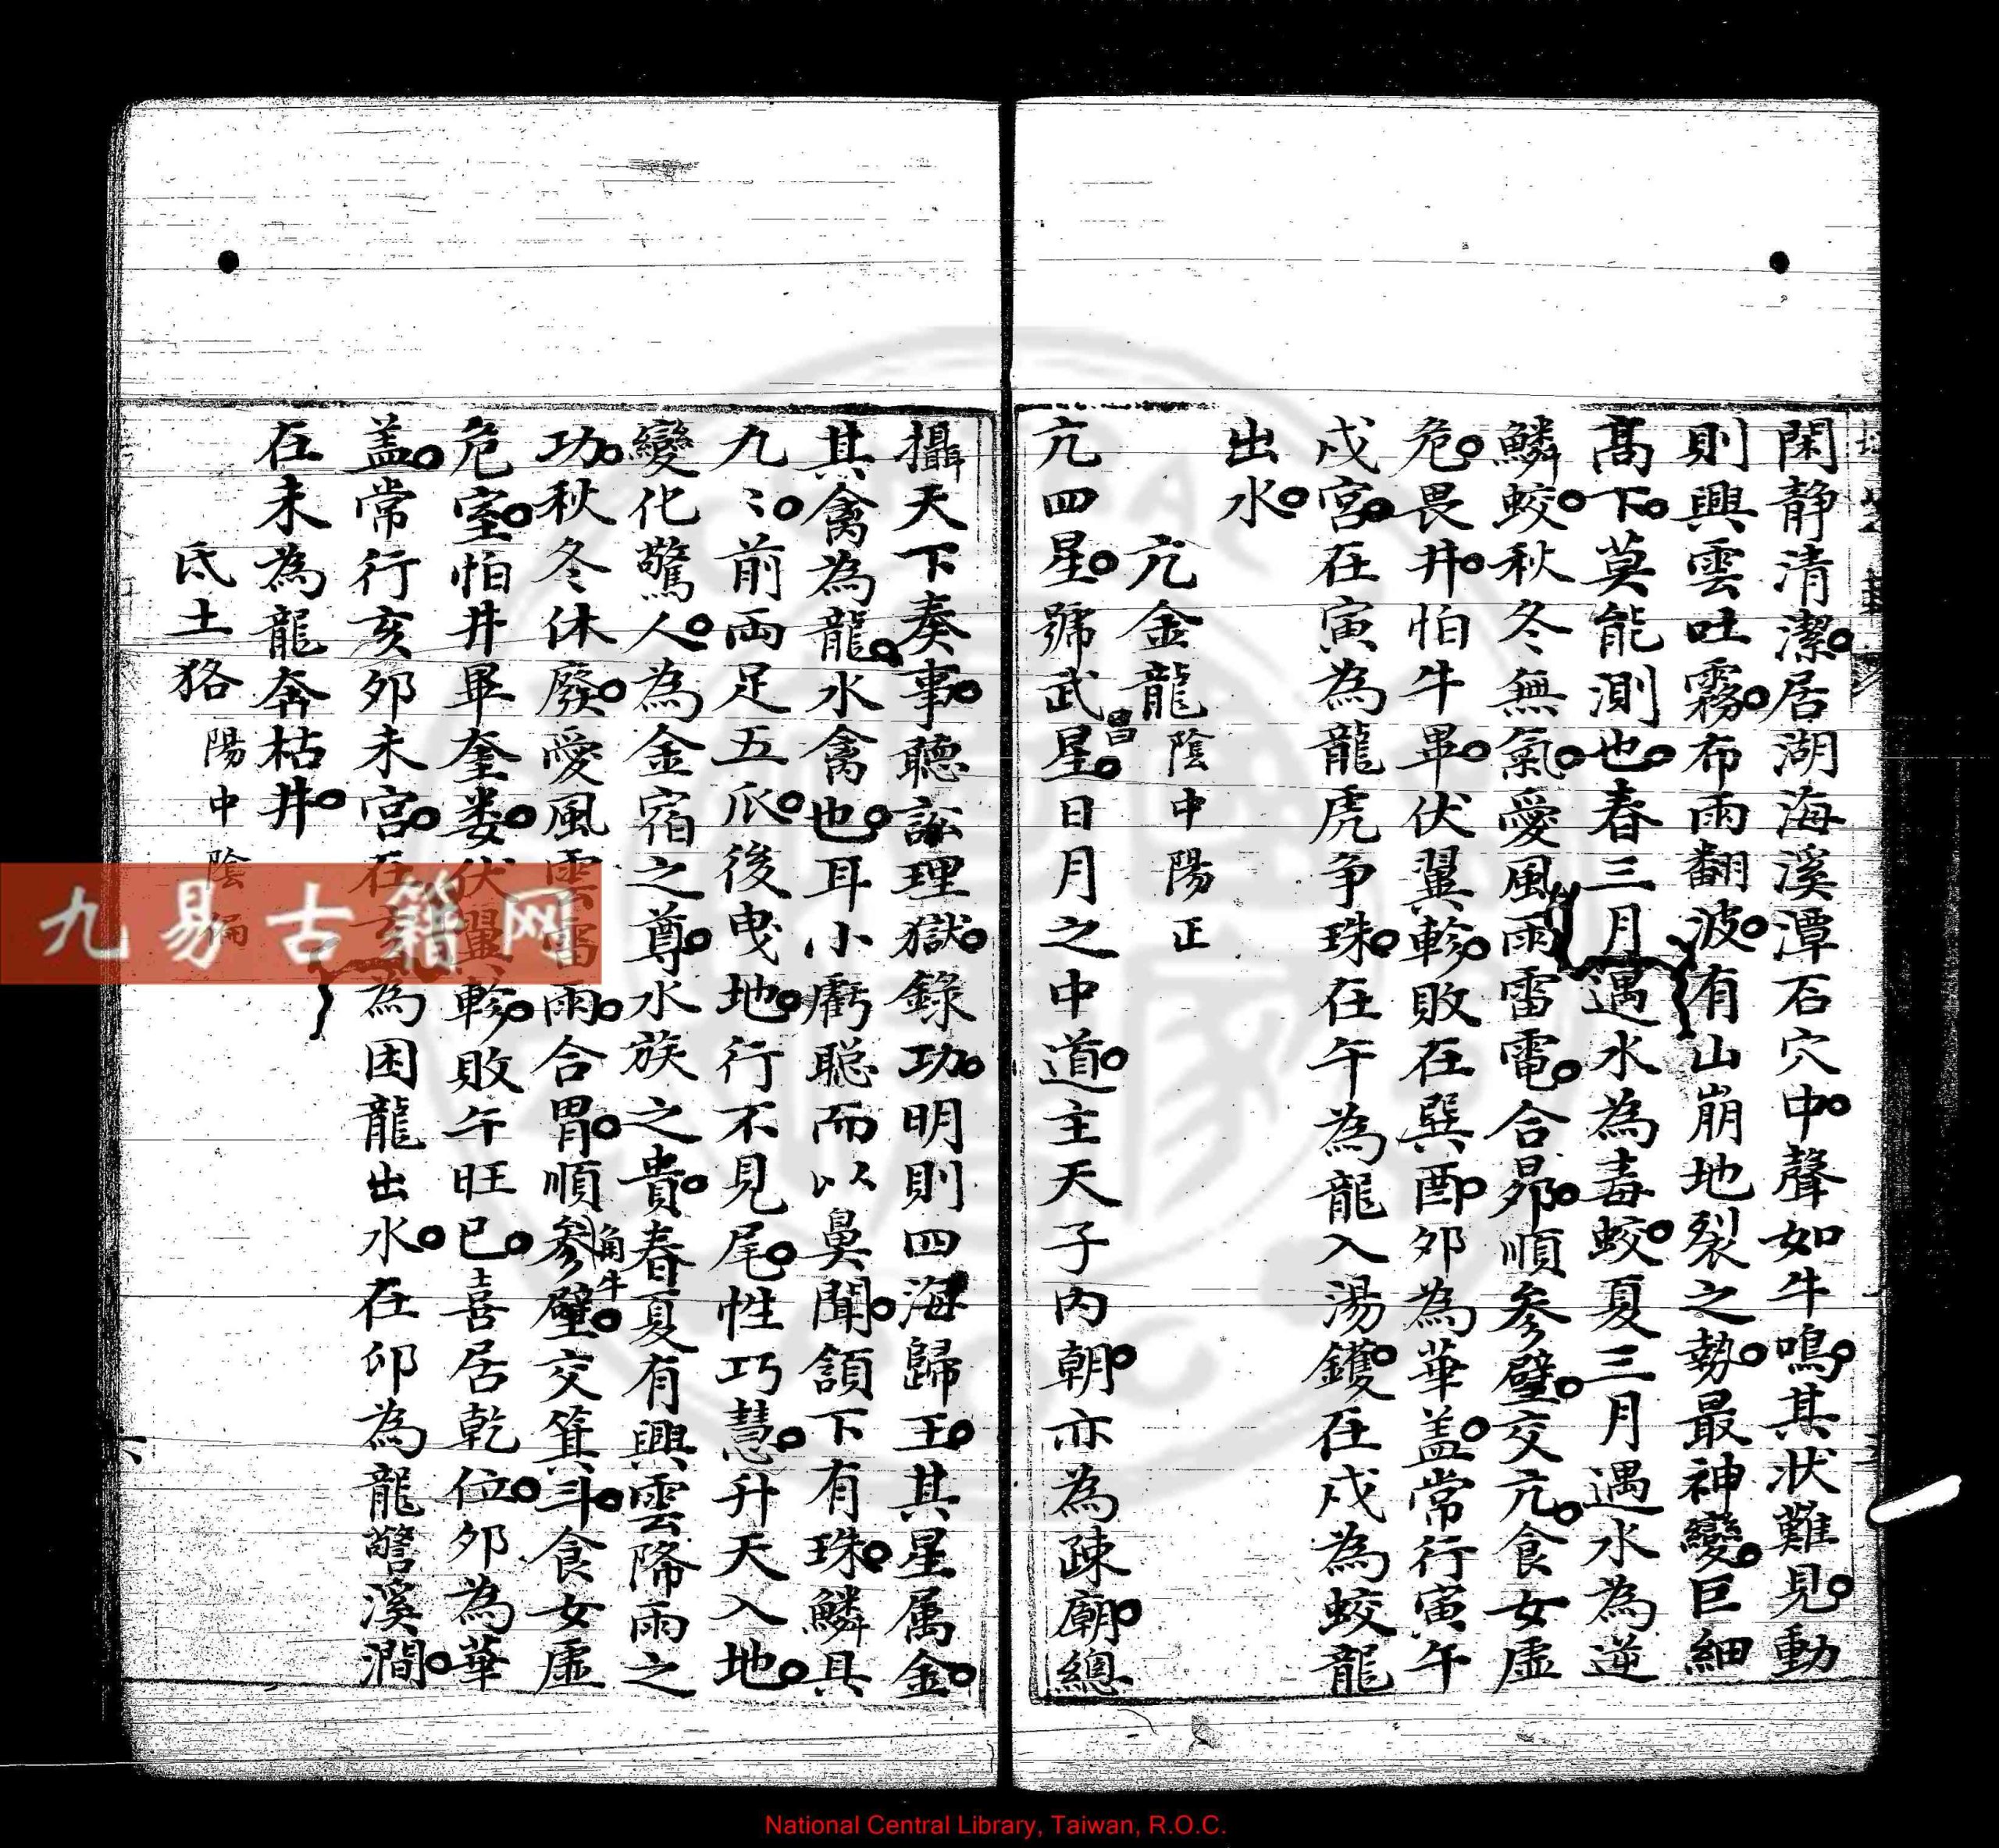 閑静清潔居湖海溪潭石穴中聲如牛鳴其状難見動
則興雲吐霧布雨翻波有山崩地裂之勢最神變巨細
髙下莫能測也春三月遇水為毒蛟夏三月遇水為逆
鱗蛟秋冬無氣愛風雨雷電合昴順参壁交亢食女虚
危畏井怕牛畢伏翼軫敗在巽酉卯為華盖常行寅午
戍宮在寅為龍虎争珠在午為龍入湯鑊在戍為蛟龍
出水
亢金龍陰中陽正
亢四星號武星昌日月之中道主天子内朝亦為疎廟總
攝天下奏事聽訟理獄錄功明則四海歸王其星属金
其禽為龍水禽也耳小虧聪而以鼻聞頷下有珠鱗具
九〻前両足五爪後曳地行不見尾性巧慧升天入地
變化驚人為金宿之尊水族之貴春夏有興雲降雨之
功秋冬休廢愛風雲雷雨合胃順参角牛壁交箕斗食女虚
危室怕井畢奎娄伏翼軫敗午旺巳喜居乾位夘為華
盖常行亥夘未宮在亥為困龍出水在卯為龍警溪澗
在未為龍奔枯井
氐土狢陽中陰偏
九易古籍网
National Central Library, Taiwan, R.O.C.